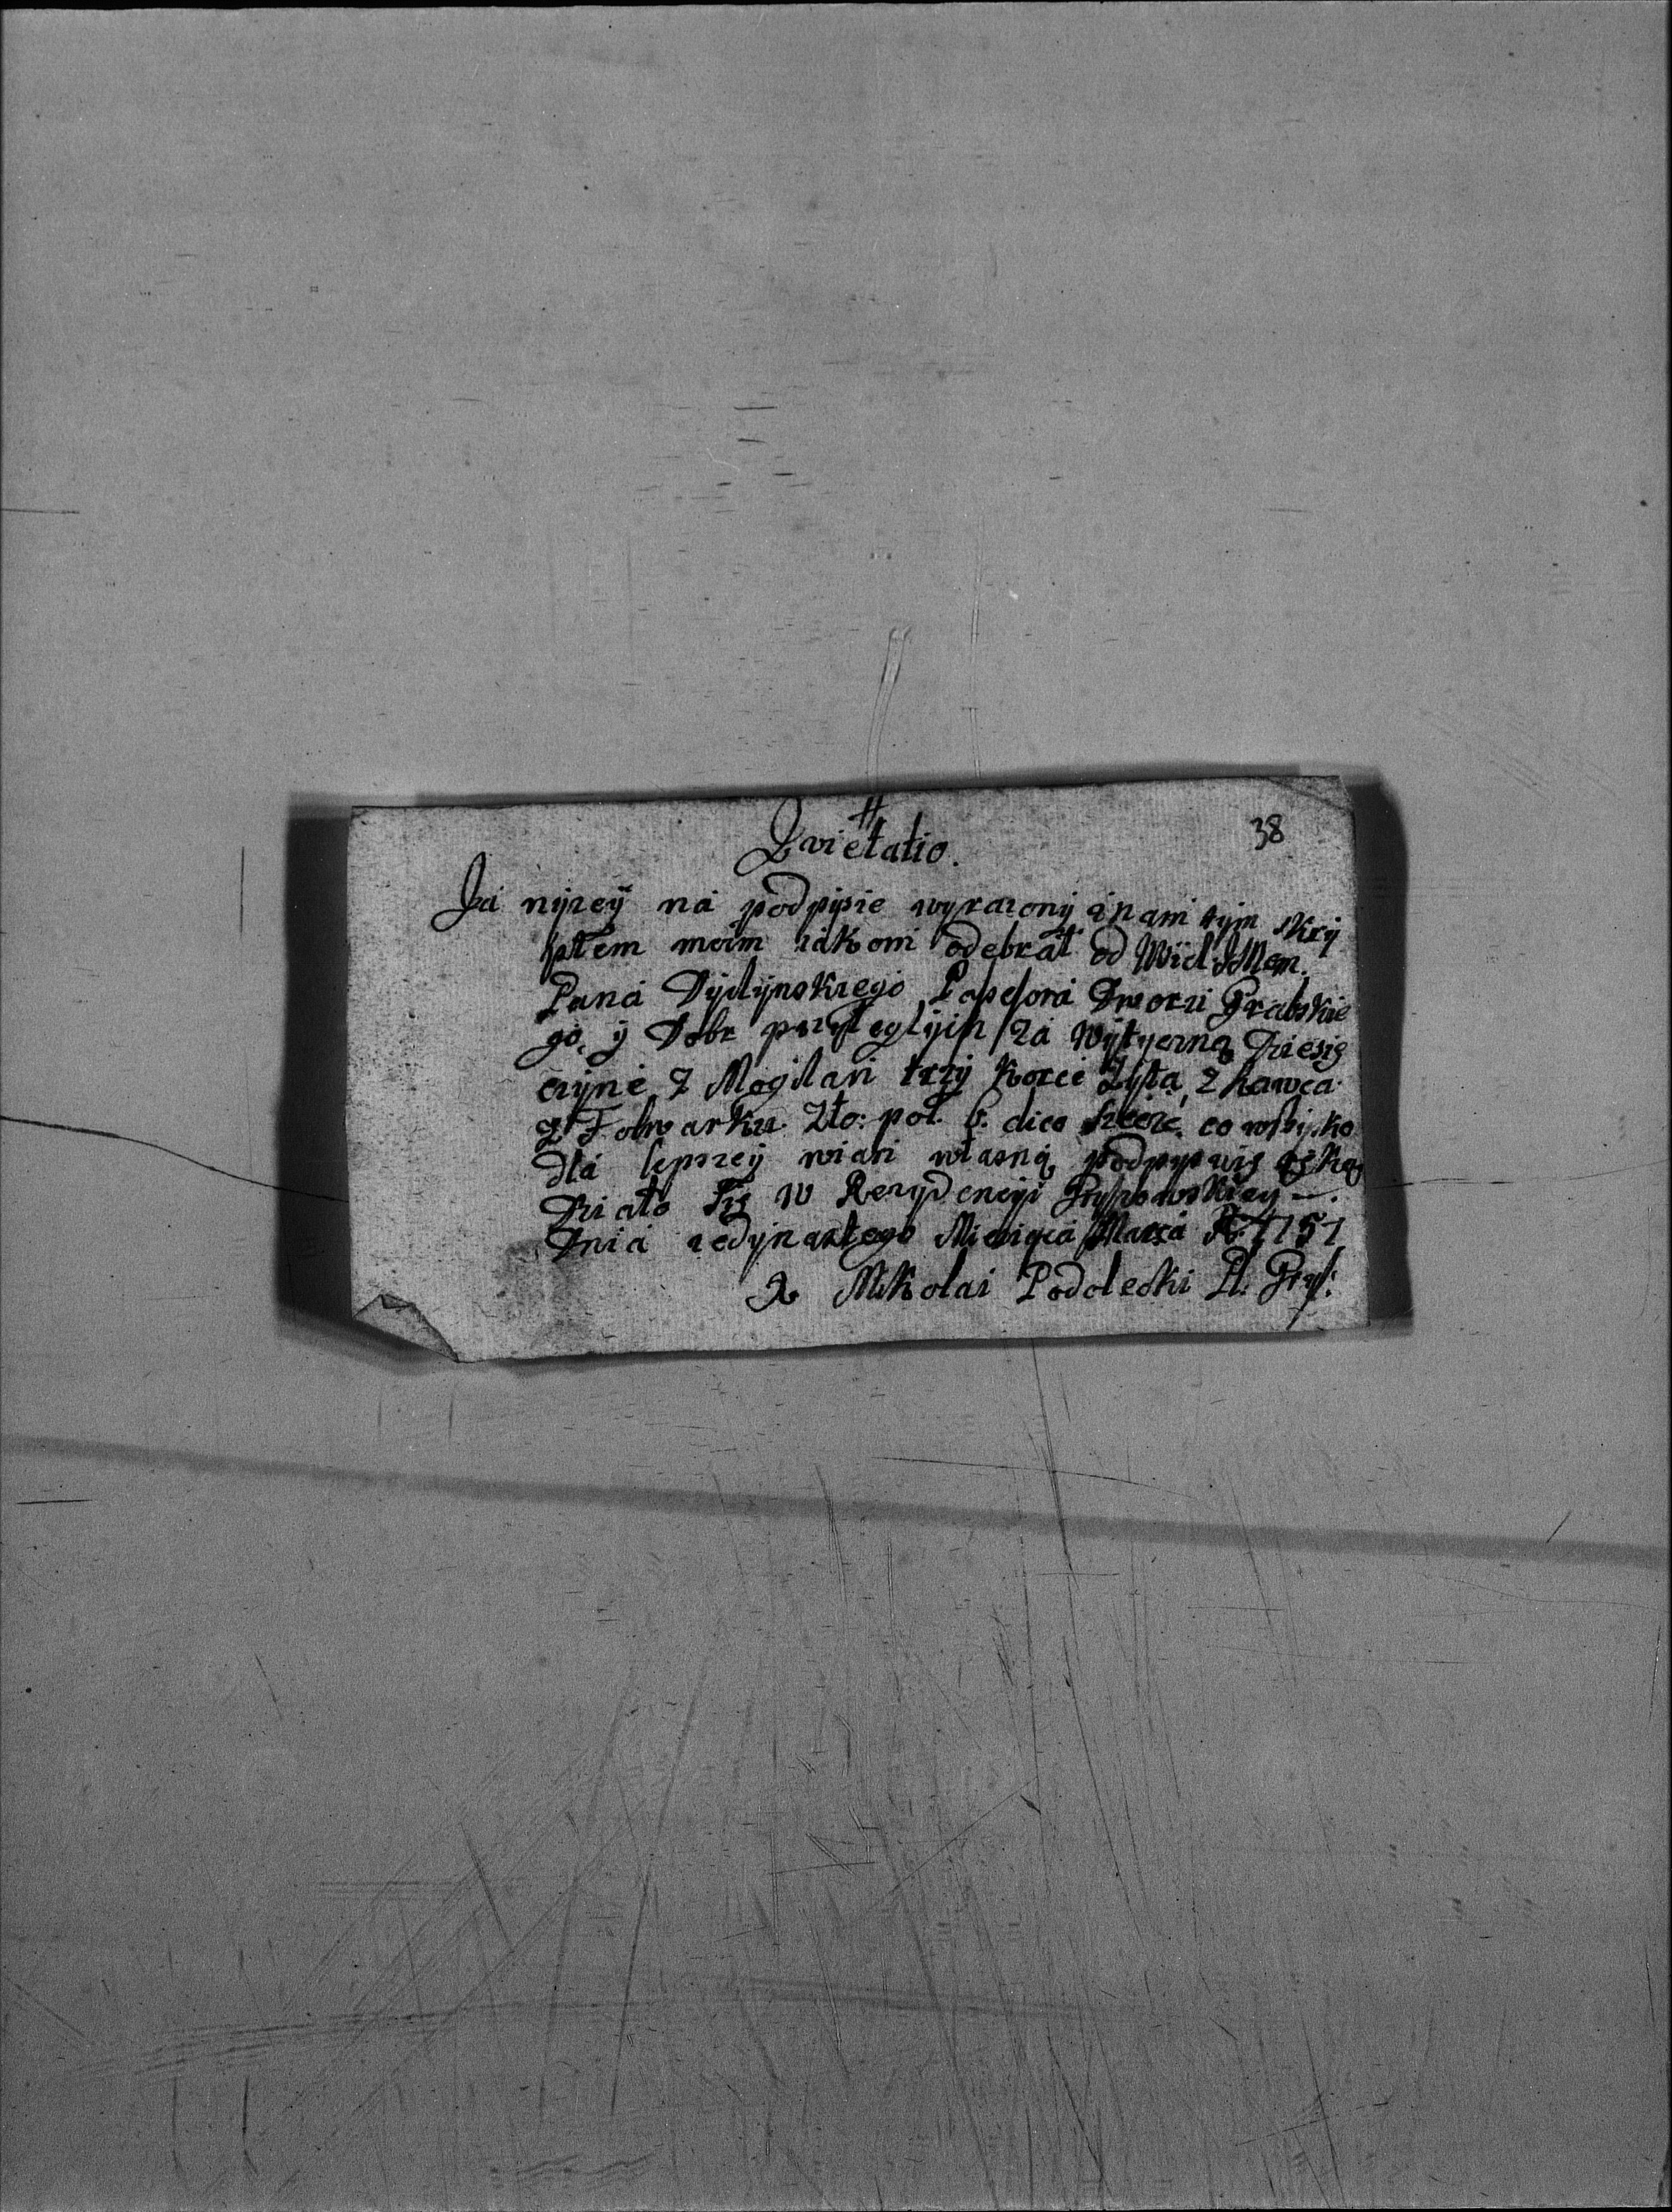 38
Qvietatio.
Ja nyzey na podpisie wyrazony znam tym skry
ptem moim iakom odebrał od Wiel: JMem.
Pana Dydynskiego Posesora Dworu Grabskie
go, y Dobr przyległyih za wytyczną Dziesię
czyne, z Mogilan trzy Korce Zyta, z hawca
z Folwarku Zło: pol. 6. dico szesc, co wszysko
dla lepszey wiari własną podpysuię ręką
Działo się w Rezydencyi
Dnia iedynastego Miesiąca Marca R. 1757
X Mikolai Podolecki Pl. Gryb: